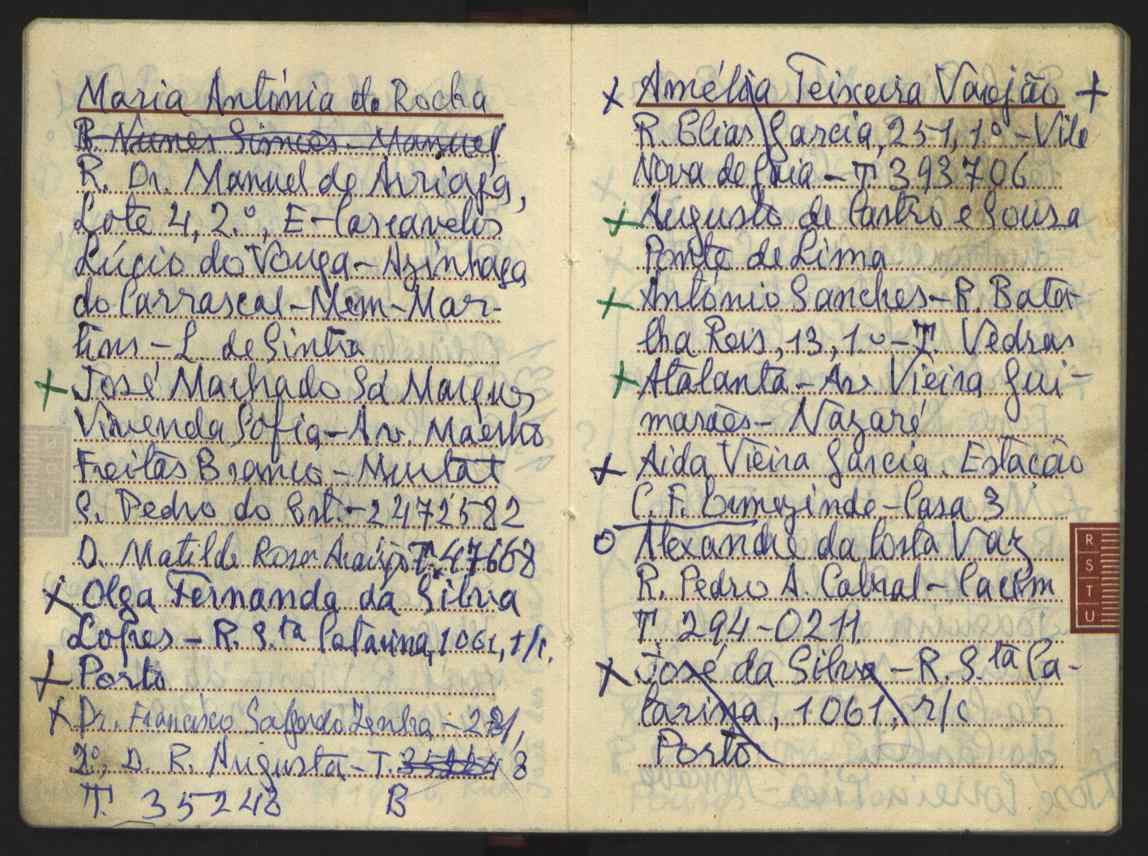 Maria Antónia da Rocha
R. Nunes Simões - Manuel
R. Dr. Manuel de Arriaga,
Lote 4, 2.º, E - Carcavelos
Lúcio do Vouga - Azinhaga
do Carrascal - Mem-Mar-
tins - L. de Sintra
+ José Machado Sá Marques
Vivenda Sofia, - Av. Maestro
Freitas Branco -
S. Pedro do Est. - 2472582
D. Matilde Rosa Araújo T. 47668
x Olga Fernanda da Silva
Lopes - R. S.ta Catarina, 1061, r/c.
+ Porto
x Dr. Francisco Salgado Zenha - 
2º, D. R. Augusta - T.
T. 35248 B
x Amélia Teixeira Varejão +
R. Elias Garcia, 251, 1.º - Vila
Nova de Gaia - T. 393706
+ Augusto de Castro e Sousa
Ponte de Lima
+ António Sanches - R. Bata-
lha Reis, 13, 1.º - T. Vedras
+ Atalanta - Av. Vieira Gui-
marães - Nazaré
x Aida Vieira Garcia. Estação
C. F. Ermezinde - Casa 3
o Alexandre da Costa Vaz
R. Pedro A. Cabral - Cacém
T. 294-0211
x José da Silva - R. S.ta Ca-
tarina, 1061, r/c
Porto
R
S
T
U